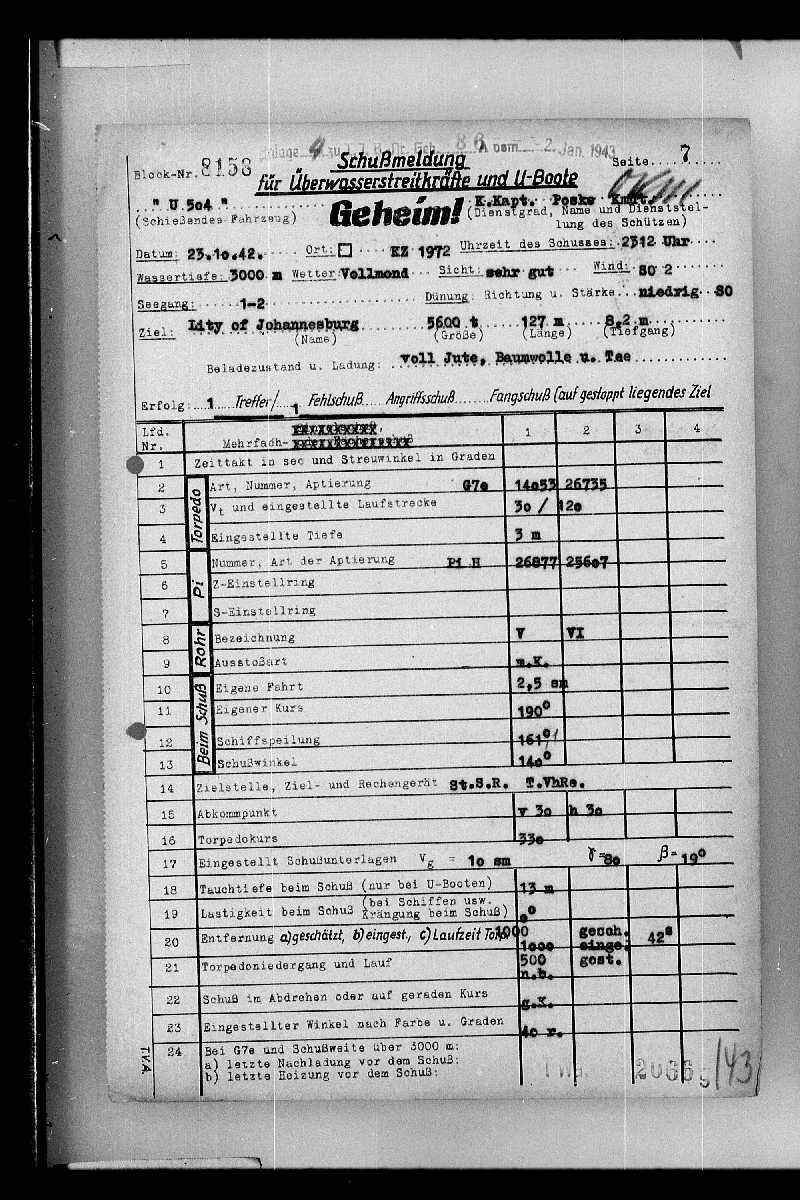 Anlage 4 zu vom 2. Jan. 1943
Block-Nr. 8158 Schußmeldung Seite 7
für Überwasserstreitkräfte und U-Boote
" U 504 " Geheim! K.Kapt. Poske Kmdt.
(Schießendes Fahrzeug) (Dienstgrad, Name und Dienststel-
lung des Schützen)
Datum: 23.10.42. Ort: KZ 1972 Uhrzeit des Schusses: 2312 Uhr
Wassertiefe: 3000 m Wetter: Vollmond Sicht: sehr gut Wind: SO 2
Seegang: 1-2 Dünung: Richtung u. Stärke niedrig SO
Ziel: Lity of Johannesburg 5600 t 127 m 8,2 m
(Name) (Größe) (Länge) (Tiefgang)
Beladezustand u. Ladung: voll Jute, Baumwolle u. Tee
Erfolg: 1 Treffer/ 1 Fehlschuß Angriffsschuß Fangschuß (auf gestoppt liegendes Ziel
Lfd. Nr. Mehrfach- 1 2 3 4
1 Zeittakt in sec und Streuwinkel in Graden
Torpedo
2 Art, Nummer, Aptierung G7e 14053 26735
3 Vt und eingestellte Laufstrecke 30 / 120
4 Eingestellte Tiefe 3 m
Pi
5 Nummer, Art der Aptierung Pi H 26877 25607
6 Z-Einstellring
7 S-Einstellring
Rohr
8 Bezeichnung V VI
9 Ausstoßart m.K.
Beim Schuß
10 Eigene Fahrt 2,5 sm
11 Eigener Kurs 190°
12 Schiffspeilung 161°
13 Schußwinkel 140°
14 Zielstelle, Ziel- und Rechengerät St.S.R. T.VhRe.
15 Abkommpunkt v 30 h 30
16 Torpedokurs 330
17 Eingestellt Schußunterlagen Vg = 10 sm γ=80 β=19°
18 Tauchtiefe beim Schuß (nur bei U-Booten) 13 m
19 Lastigkeit beim Schuß (bei Schiffen usw. Krängung beim Schuß) 0°
20 Entfernung a) geschätzt, b) eingest., c) Laufzeit Torp. 1000 gesch. 42s
1000 einge.
21 Torpedoniedergang und Lauf 500 gest.
n.b.
22 Schuß im Abdrehen oder auf geraden Kurs g.K.
23 Eingestellter Winkel nach Farbe u. Graden 40 r.
24 Bei G7e und Schußweite über 3000 m:
a) letzte Nachladung vor dem Schuß:
b) letzte Heizung vor dem Schuß:
T.V.A.
/43